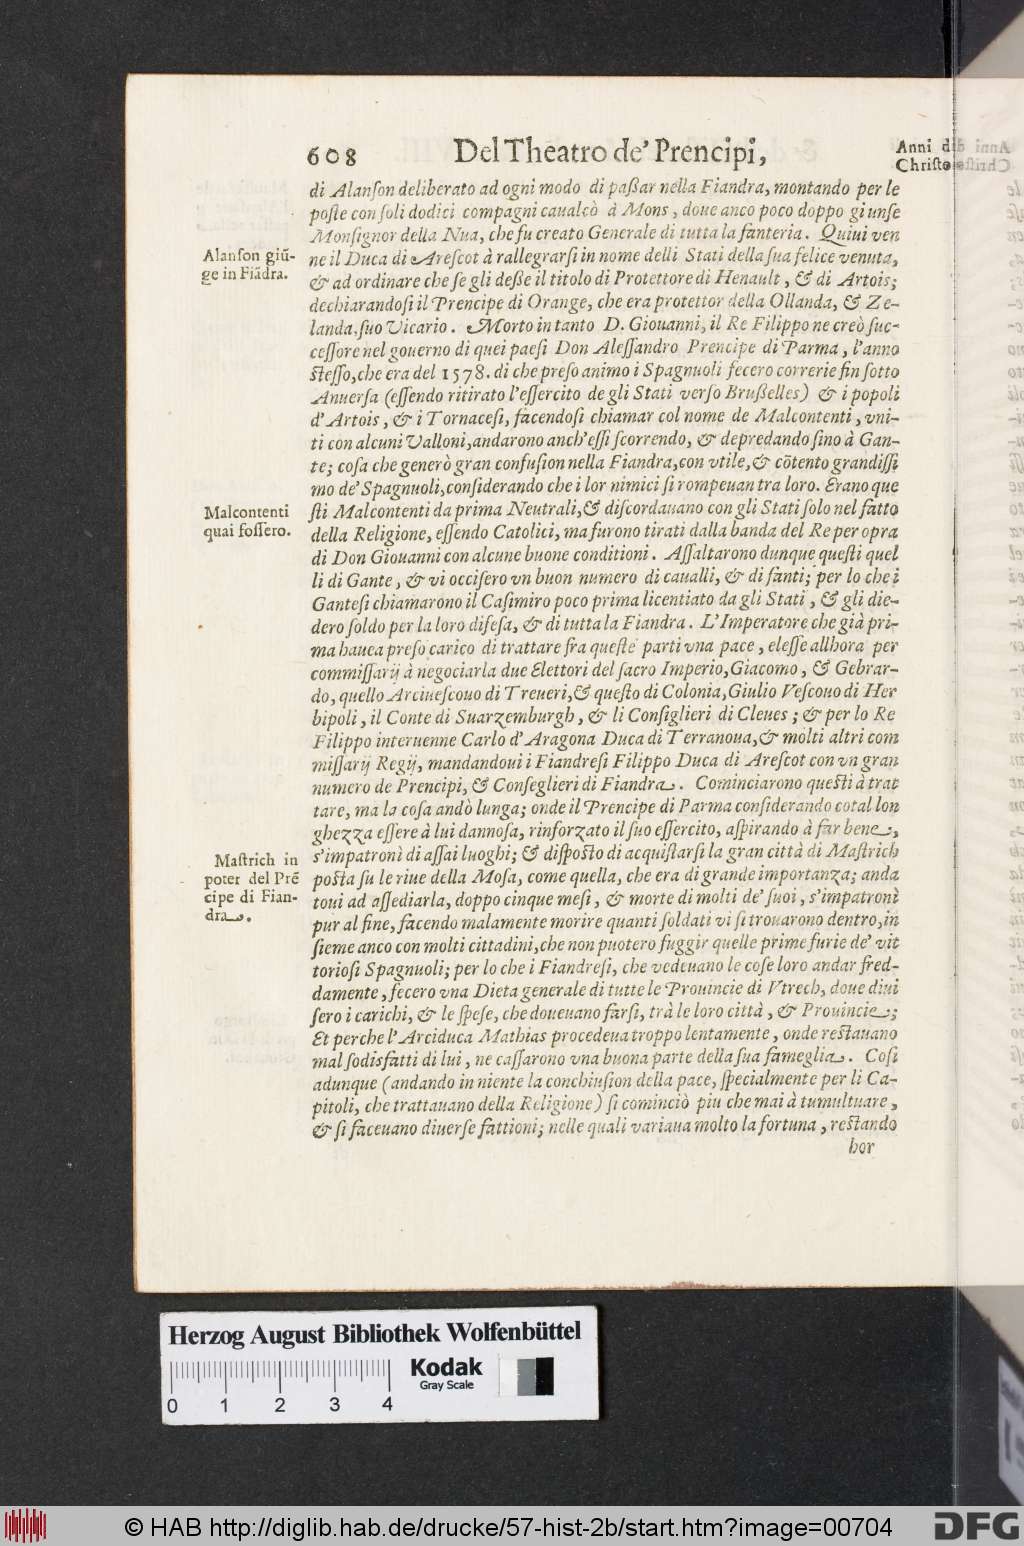 608 Del Theatro de' Prencipi,
Anni di
Christo
di Alanſon deliberato ad ogni modo di paßar nella Fiandra, montando per le
poſte con ſoli dodici compagni caualcò à Mons, doue anco poco doppo giunſe
Monſignor della Nua, che fu creato Generale di tutta la fanteria. Quiui ven
ne il Duca di Areſcot à rallegrarſi in nome delli Stati della ſua felice venuta,
& ad ordinare che ſe gli deße il titolo di Protettore di Henault, & di Artois;
dechiarandoſi il Prencipe di Orange, che era protettor della Ollanda, & Ze-
landa, ſuo Vicario. Morto in tanto D. Giouanni, il Re Filippo ne creò ſuc-
ceſſore nel gouerno di quei paeſi Don Aleſſandro Prencipe di Parma, l'anno
ſteſſo, che era del 1578. di che preſo animo i Spagnuoli fecero correrie fin ſotto
Anuerſa (eſſendo ritirato l'eſſercito de gli Stati verſo Brußelles) & i popoli
d'Artois, & i Tornaceſi, facendoſi chiamar col nome de Malcontenti, vni-
ti con alcuni Valloni, andarono anch'eſſi ſcorrendo, & depredando ſino à Gan-
te; coſa che generò gran confuſion nella Fiandra, con vtile, & cōtento grandiſſi
mo de' Spagnuoli, conſiderando che i lor nimici ſi rompeuan tra loro. Erano que
ſti Malcontenti da prima Neutrali, & diſcordauano con gli Stati ſolo nel fatto
della Religione, eſſendo Catolici, ma furono tirati dalla banda del Re per opra
di Don Giouanni con alcune buone conditioni. Aſſaltarono dunque queſti quel
li di Gante, & vi occiſero vn buon numero di caualli, & di fanti; per lo che i
Ganteſi chiamarono il Caſimiro poco prima licentiato da gli Stati, & gli die-
dero ſoldo per la loro difeſa, & di tutta la Fiandra. L'Imperatore che già pri-
ma hauea preſo carico di trattare fra queſte parti vna pace, eleſſe allhora per
commiſſarij à negociarla due Elettori del ſacro Imperio, Giacomo, & Gebrar-
do, quello Arciueſcouo di Treueri, & queſto di Colonia, Giulio Veſcouo di Her
bipoli, il Conte di Suarzemburgh, & li Conſiglieri di Cleues; & per lo Re
Filippo interuenne Carlo d'Aragona Duca di Terranoua, & molti altri com
miſſarij Regij, mandandoui i Fiandreſi Filippo Duca di Areſcot con vn gran
numero de Prencipi, & Conſeglieri di Fiandra. Cominciarono queſti à trat
tare, ma la coſa andò lunga; onde il Prencipe di Parma conſiderando cotal lon
ghezza eſſere à lui dannoſa, rinforzato il ſuo eſſercito, aſpirando à far bene,
s'impatronì di aſſai luoghi; & diſpoſto di acquiſtarſi la gran città di Maſtrich
poſta ſu le riue della Moſa, come quella, che era di grande importanza; anda
toui ad aſſediarla, doppo cinque meſi, & morte di molti de' ſuoi, s'impatronì
pur al fine, facendo malamente morire quanti ſoldati vi ſi trouarono dentro, in
ſieme anco con molti cittadini, che non puotero fuggir quelle prime furie de' vit
torioſi Spagnuoli; per lo che i Fiandreſi, che vedeuano le coſe loro andar fred-
damente, fecero vna Dieta generale di tutte le Prouincie di Vtrech, doue diui
ſero i carichi, & le ſpeſe, che doueuano farſi, trà le loro città, & Prouincie;
Et perche l'Arciduca Mathias procedeua troppo lentamente, onde reſtauano
mal ſodisfatti di lui, ne caſſarono vna buona parte della ſua fameglia. Coſi
adunque (andando in niente la conchiuſion della pace, ſpecialmente per li Ca-
pitoli, che trattauano della Religione) ſi cominciò piu che mai à tumultuare,
& ſi faceuano diuerſe fattioni; nelle quali variaua molto la fortuna, reſtando
hor
Alanſon giū-
ge in Fiādra.
Malcontenti
quai foſſero.
Maſtrich in
poter del Prē
cipe di Fian-
dra.
Herzog August Bibliothek Wolfenbüttel
Kodak
Gray Scale
0 1 2 3 4
© HAB http://diglib.hab.de/drucke/57-hist-2b/start.htm?image=00704
DFG